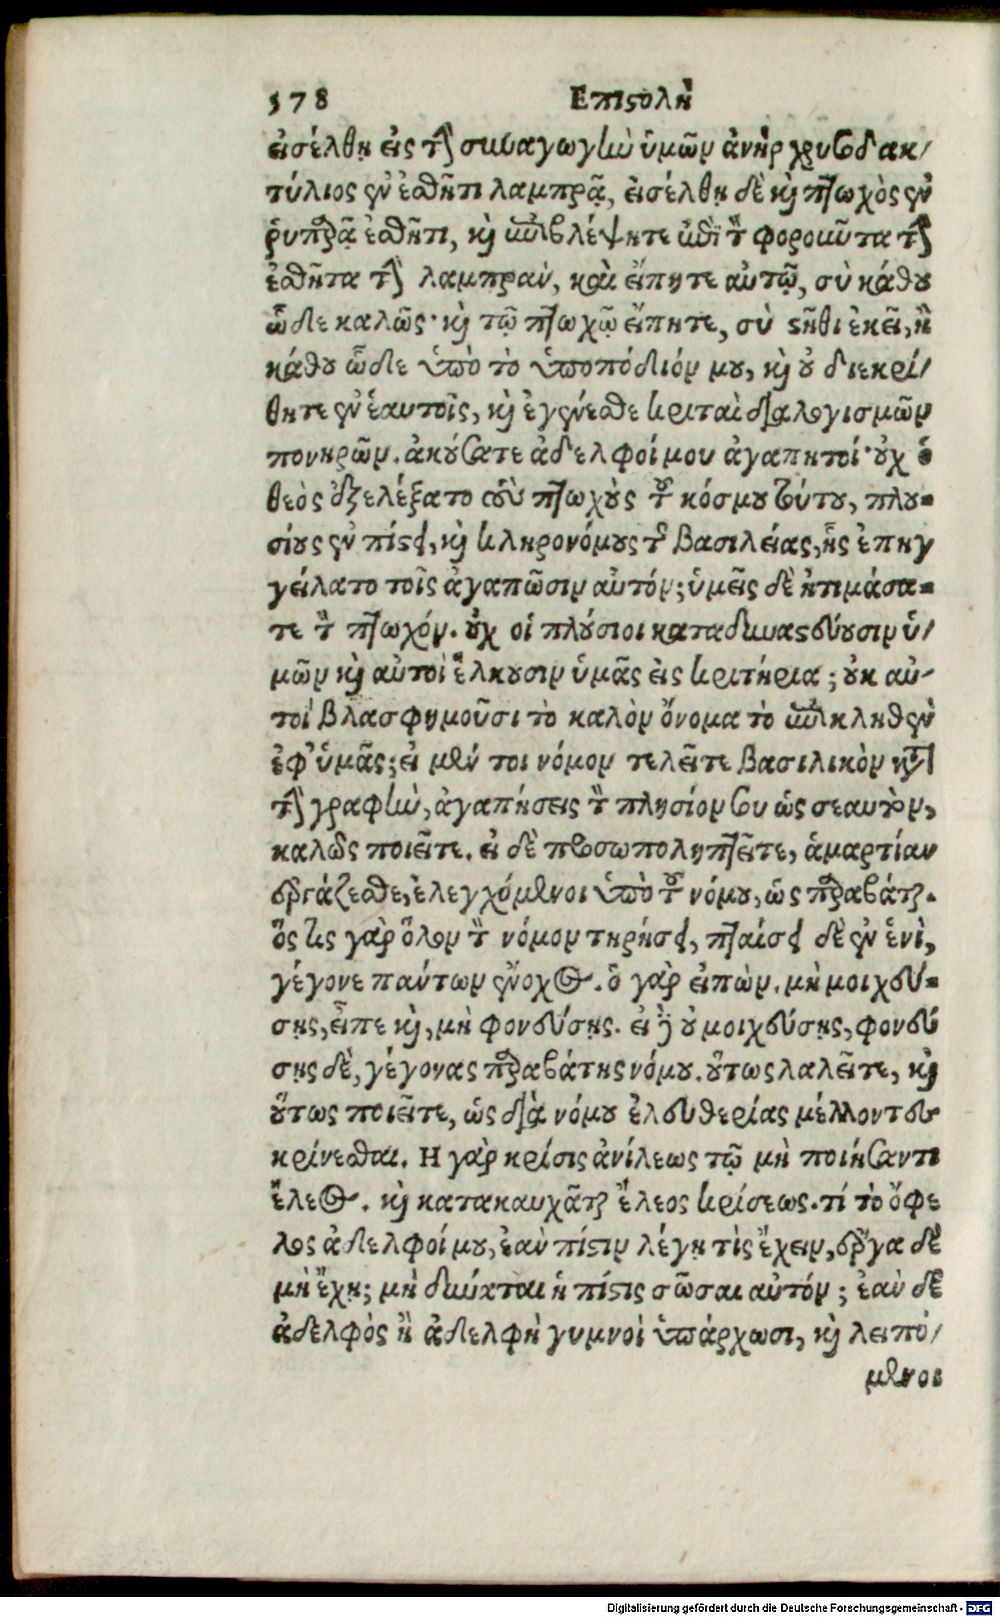 578 Επιστολὴ
εἰσέλθῃ εἰς τὴν συναγωγὴν ὑμῶν ἀνὴρ χρυσοδακ/
τύλιος ἐν ἐσθῆτι λαμπρᾷ, εἰσέλθῃ δὲ καὶ πτωχὸς ἐν
ῥυπαρᾷ ἐσθῆτι, καὶ ἐπιβλέψητε ἐπὶ τὸν φοροῦντα τὴν
ἐσθῆτα τὴν λαμπρὰν, καὶ εἴπητε αὐτῷ, σὺ κάθου
ὧδε καλῶς· καὶ τῷ πτωχῷ εἴπητε, σὺ στῆθι ἐκεῖ, ἢ
κάθου ὧδε ὑπὸ τὸ ὑποπόδιόν μου, καὶ οὐ διεκρί/
θητε ἐν ἑαυτοῖς, καὶ ἐγένεσθε κριταὶ διαλογισμῶν
πονηρῶν. ἀκούσατε ἀδελφοί μου ἀγαπητοί· οὐχ ὁ
θεὸς ἐξελέξατο τοὺς πτωχοὺς τοῦ κόσμου τούτου, πλου=
σίους ἐν πίστει, καὶ κληρονόμους τῆς βασιλείας, ἧς ἐπηγ
γείλατο τοῖς ἀγαπῶσιν αὐτόν; ὑμεῖς δὲ ἠτιμάσα=
τε τὸν πτωχόν. οὐχ οἱ πλούσιοι καταδυναστεύουσιν ὑ/
μῶν καὶ αὐτοὶ ἕλκουσιν ὑμᾶς εἰς κριτήρια; οὐκ αὐ/
τοὶ βλασφημοῦσι τὸ καλὸν ὄνομα τὸ ἐπικληθὲν
ἐφ' ὑμᾶς; εἰ μέν τοι νόμον τελεῖτε βασιλικὸν κατὰ
τὴν γραφὴν, ἀγαπήσεις τὸν πλησίον σου ὡς σεαυτὸν,
καλῶς ποιεῖτε. εἰ δὲ προσωποληπτεῖτε, ἁμαρτίαν
ἐργάζεσθε, ἐλεγχόμενοι ὑπὸ τοῦ νόμου, ὡς παραβάται.
ὅς τις γὰρ ὅλον τὸν νόμον τηρήσει, πταίσει δὲ ἐν ἑνὶ,
γέγονε πάντων ἔνοχος. ὁ γὰρ εἰπὼν. μὴ μοιχεύ=
σῃς, εἶπε καὶ, μὴ φονεύσῃς. εἰ δὲ οὐ μοιχεύσῃς, φονεύ
σῃς δὲ, γέγονας παραβάτης νόμου. οὕτως λαλεῖτε, καὶ
οὕτως ποιεῖτε, ὡς διὰ νόμου ἐλευθερίας μέλλοντες
κρίνεσθαι. Η γὰρ κρίσις ἀνίλεως τῷ μὴ ποιήσαντι
ἔλεος. καὶ κατακαυχᾶται ἔλεος κρίσεως. τί τὸ ὄφε
λος ἀδελφοί μου, ἐὰν πίστιν λέγῃ τὶς ἔχειν, ἔργα δὲ
μὴ ἔχῃ; μὴ δύναται ἡ πίστις σῶσαι αὐτόν; ἐὰν δὲ
ἀδελφὸς ἢ ἀδελφὴ γυμνοὶ ὑπάρχωσι, καὶ λειπό/
μενοι
Digitalisierung gefördert durch die Deutsche Forschungsgemeinschaft - DFG